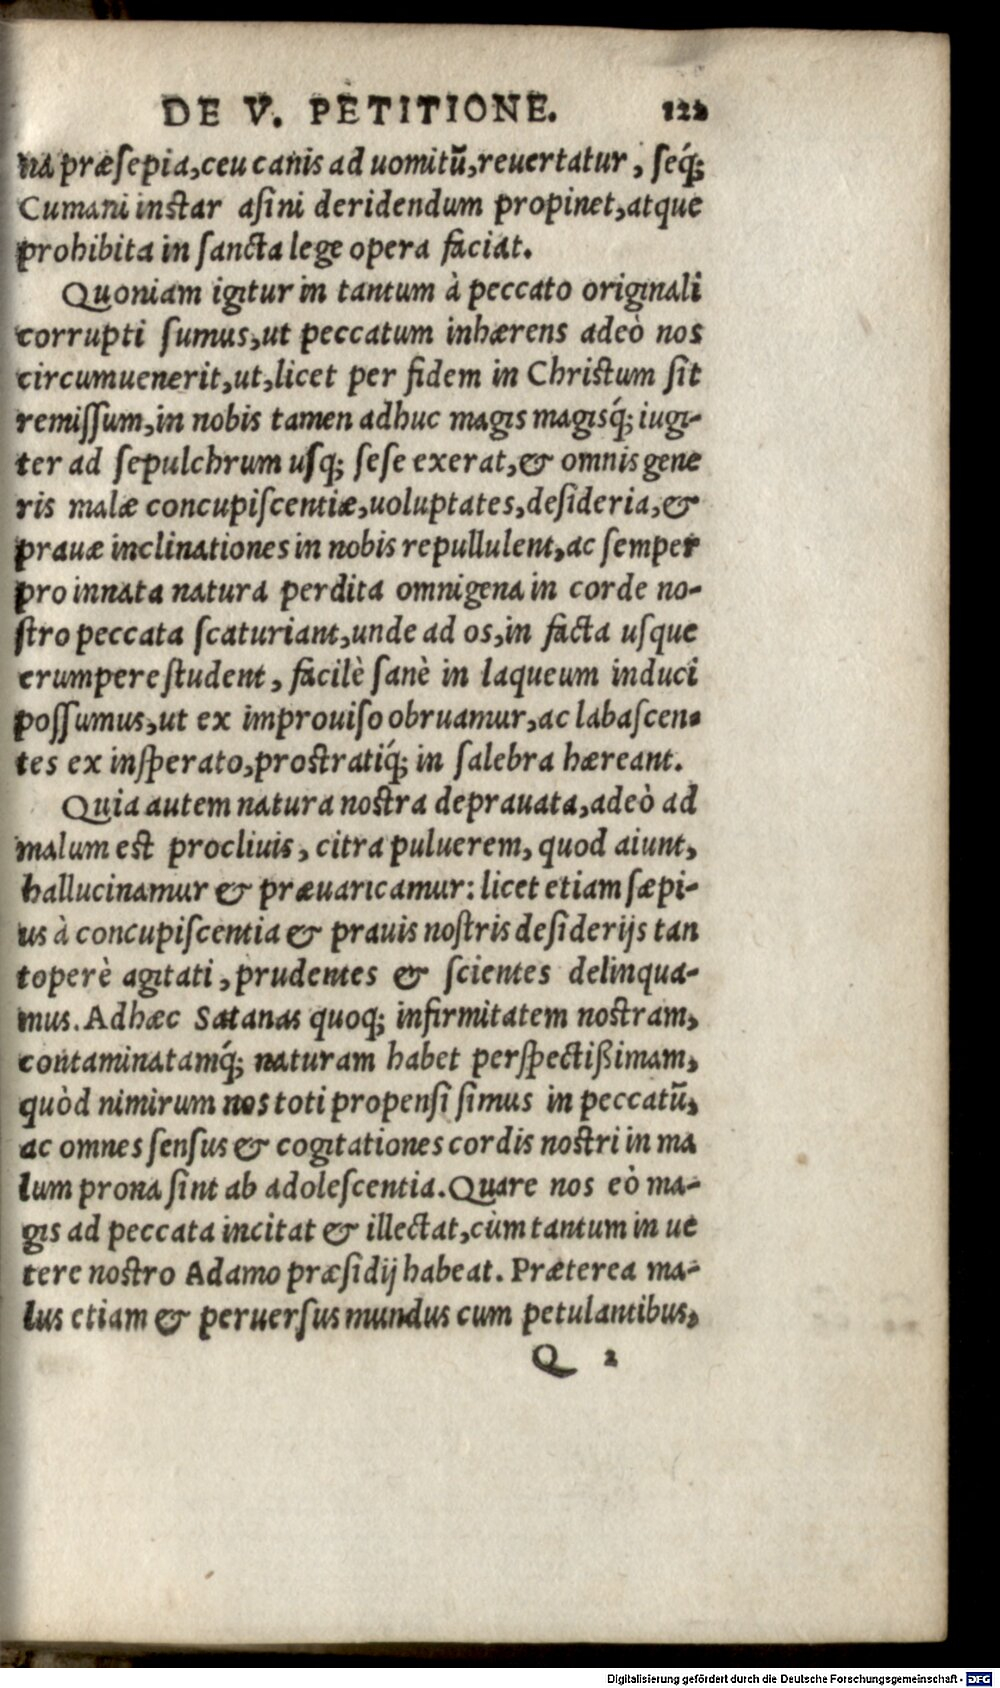 DE V. PETITIONE. 122
na præſepia,ceu canis ad uomitũ,reuertatur, ſeq́;
Cumani instar aſini deridendum propinet,atque
prohibita in ſancta lege opera faciat.
Quoniam igitur in tantum à peccato originali
corrupti ſumus,ut peccatum inhærens adeò nos
circumuenerit,ut,licet per fidem in Christum ſit
remiſſum,in nobis tamen adhuc magis magisq́; iugi-
ter ad ſepulchrum uſq; ſeſe exerat,& omnis gene
ris malæ concupiſcentiæ,uoluptates,deſideria,&
prauæ inclinationes in nobis repullulent,ac ſemper
pro innata natura perdita omnigena in corde no-
ſtro peccata ſcaturiant,unde ad os,in facta uſque
erumpere ſtudent, facilè ſanè in laqueum induci
poſſumus,ut ex improuiſo obruamur,ac labaſcen-
tes ex inſperato,prostratiq́; in ſalebra hæreant.
Quia autem natura nostra deprauata,adeò ad
malum est procliuis, citra puluerem, quod aiunt,
hallucinamur & præuaricamur: licet etiam ſæpi-
us à concupiſcentia & prauis noſtris deſiderijs tan
toperè agitati, prudentes & ſcientes delinqua-
mus. Adhæc Satanas quoq; infirmitatem nostram,
contaminatamq́; naturam habet perſpectißimam,
quòd nimirum nos toti propenſi ſimus in peccatũ,
ac omnes ſenſus & cogitationes cordis nostri in ma
lum prona ſint ab adoleſcentia. Quare nos eò ma-
gis ad peccata incitat & illectat,cùm tantum in ue
tere nostro Adamo præſidij habeat. Præterea ma-
lus etiam & peruerſus mundus cum petulantibus,
Q 2
Digitalisierung gefördert durch die Deutsche Forschungsgemeinschaft - DFG